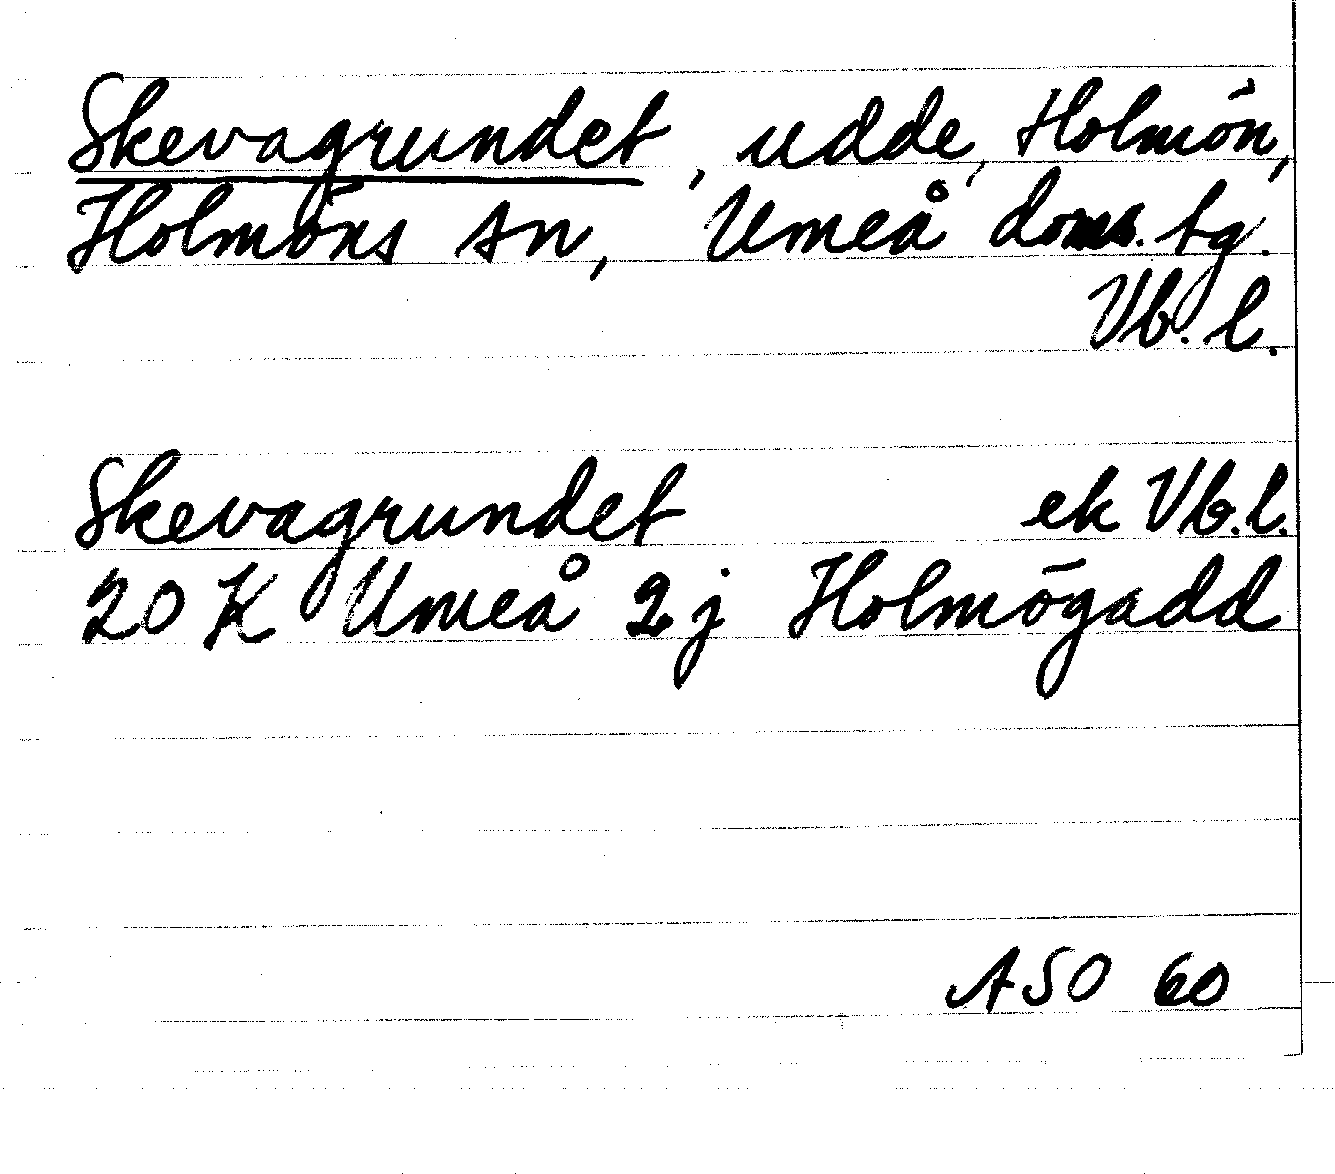 Skevagrundet, udde, Holmön,
Holmöns sn, Umeå doms. tg.
Vb. l.
Skevagrundet ek Vb.l.
20 K Umeå 2 j Holmögadd
ASO 60